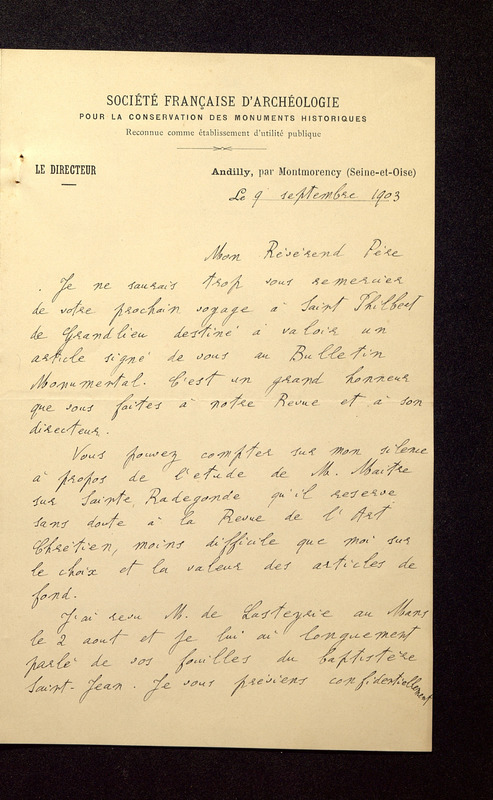 SOCIÉTÉ FRANÇAISE D'ARCHÉOLOGIE
POUR LA CONSERVATION DES MONUMENTS HISTORIQUES
Reconnue comme établissement d'utilité publique
LE DIRECTEUR
Andilly, par Montmorency (Seine-et-Oise)
Le 9 septembre 1903
Mon Révérend Père
. Je ne saurais trop vous remercier
de votre prochain voyage à Saint Philbert
de Grandlieu destiné à valoir un
article signé de vous au Bulletin
Monumental. C'est un grand honneur
que vous faites à notre Revue et à son
directeur.
Vous pouvez compter sur mon silence
à propos de l'etude de M. Maitre
sur Sainte Radegonde qu'il reserve
sans doute à la Revue de l'Art
Chrétien, moins difficile que moi sur
le choix et la valeur des articles de
fond.
J'ai revu M. de Lasteyrie au Mans
le 2 aout et je lui ai longuement
parlé de vos fouilles du baptistère
Saint-Jean. Je vous préviens confidentiellement